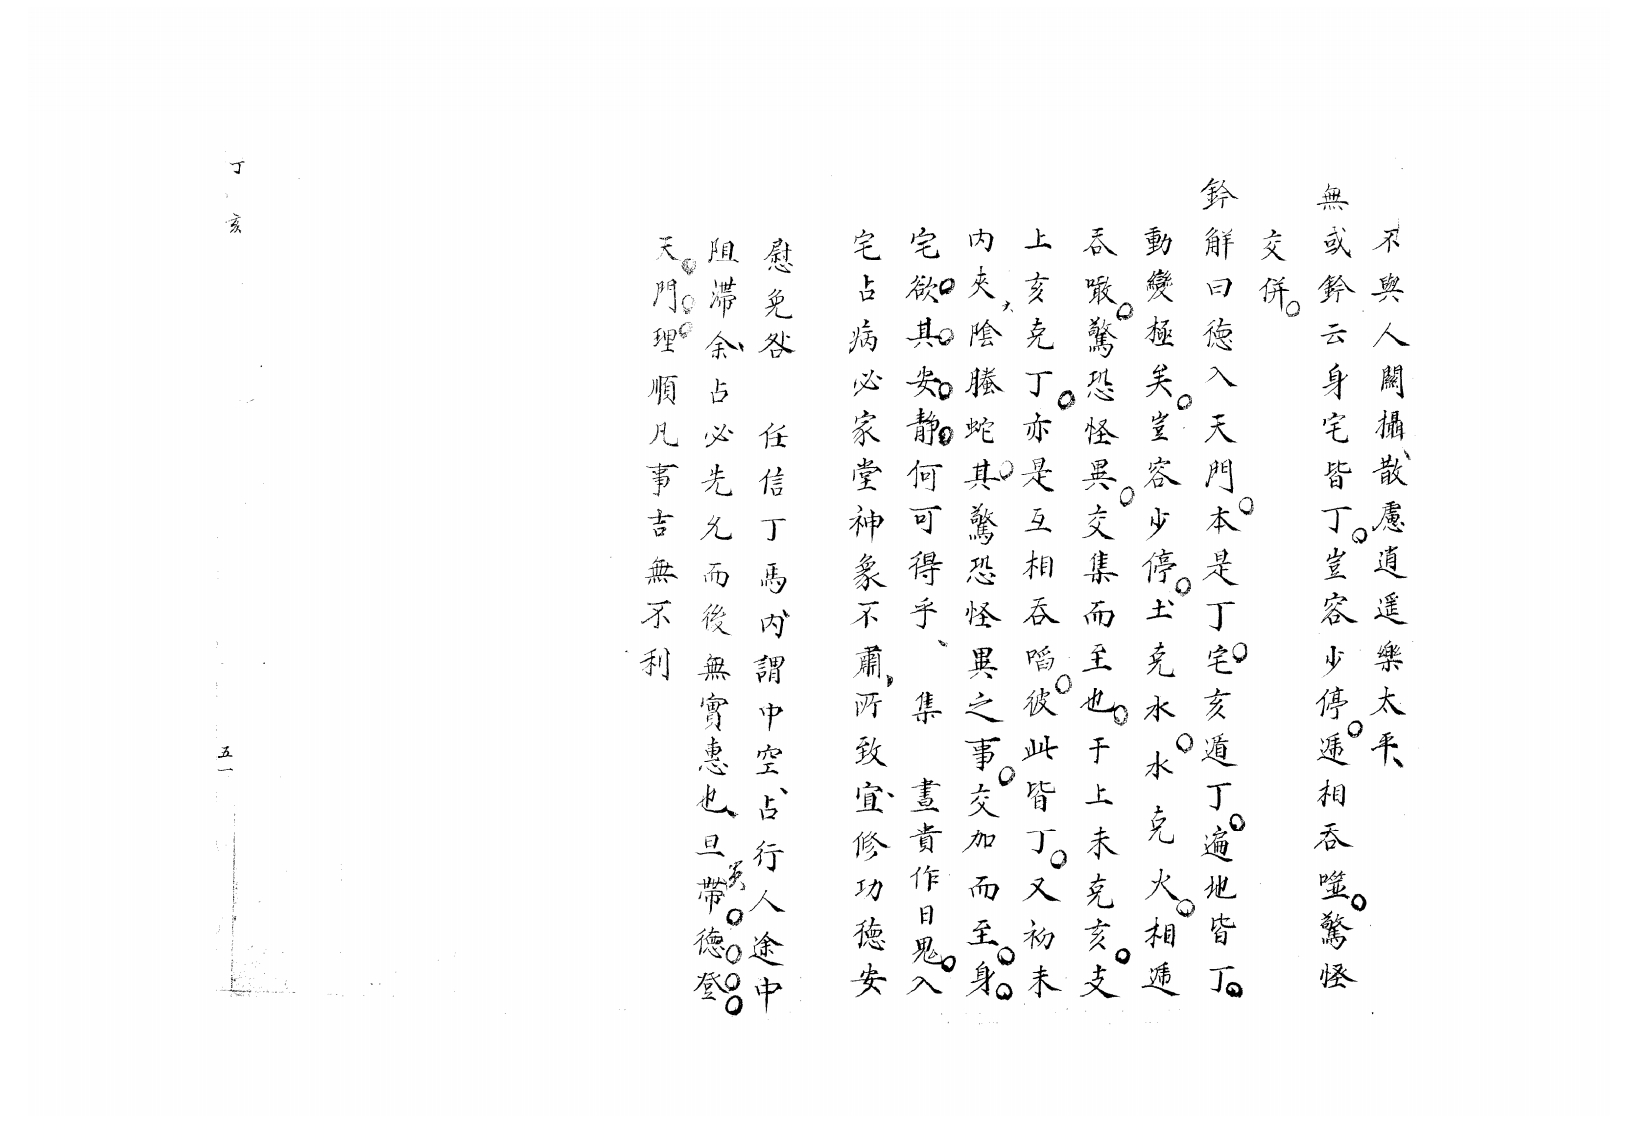 不與人關攝散慮逍遥樂太平、
無或鈐云身宅皆丁。豈容少停。遞相吞噬。驚怪
交併。
鈐解曰德入天門。本是丁宅。亥遁丁。遍地皆丁。
動變極矣。豈容少停。土克水。水克火。相遞
吞噉。驚恐怪異。交集而至也。于上未克亥。支
上亥克丁。亦是互相吞啗。彼此皆丁。又初未
内夾、陰螣蛇。其驚恐怪異之事。交加而至。身。
宅欲。其。安。静。何可得乎、集 晝貴作日鬼。入
宅占病必家堂神象不肅、所致宜、修功德安
慰免咎 任信丁馬内、謂中空、占行人途中
阻滯余、占必先允而後無實惠也、旦帶德。登。
天。門。理。順凡事吉無不利
丁亥
五一